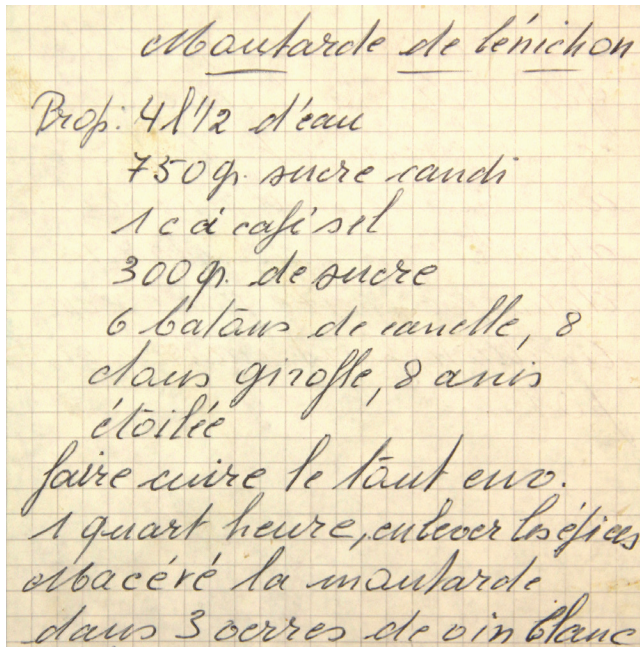 Moutarde de bénichon
Prop: 4 l 1/2 d'eau
750 gr. sucre candi
1 c à café sel
300 gr. de sucre
6 batôns de canelle, 8
clous girofle, 8 anis
étoilée
faire cuire le tôut env.
1 quart heure, enlever les épices
Macéré la moutarde
dans 3 verres de vin blanc